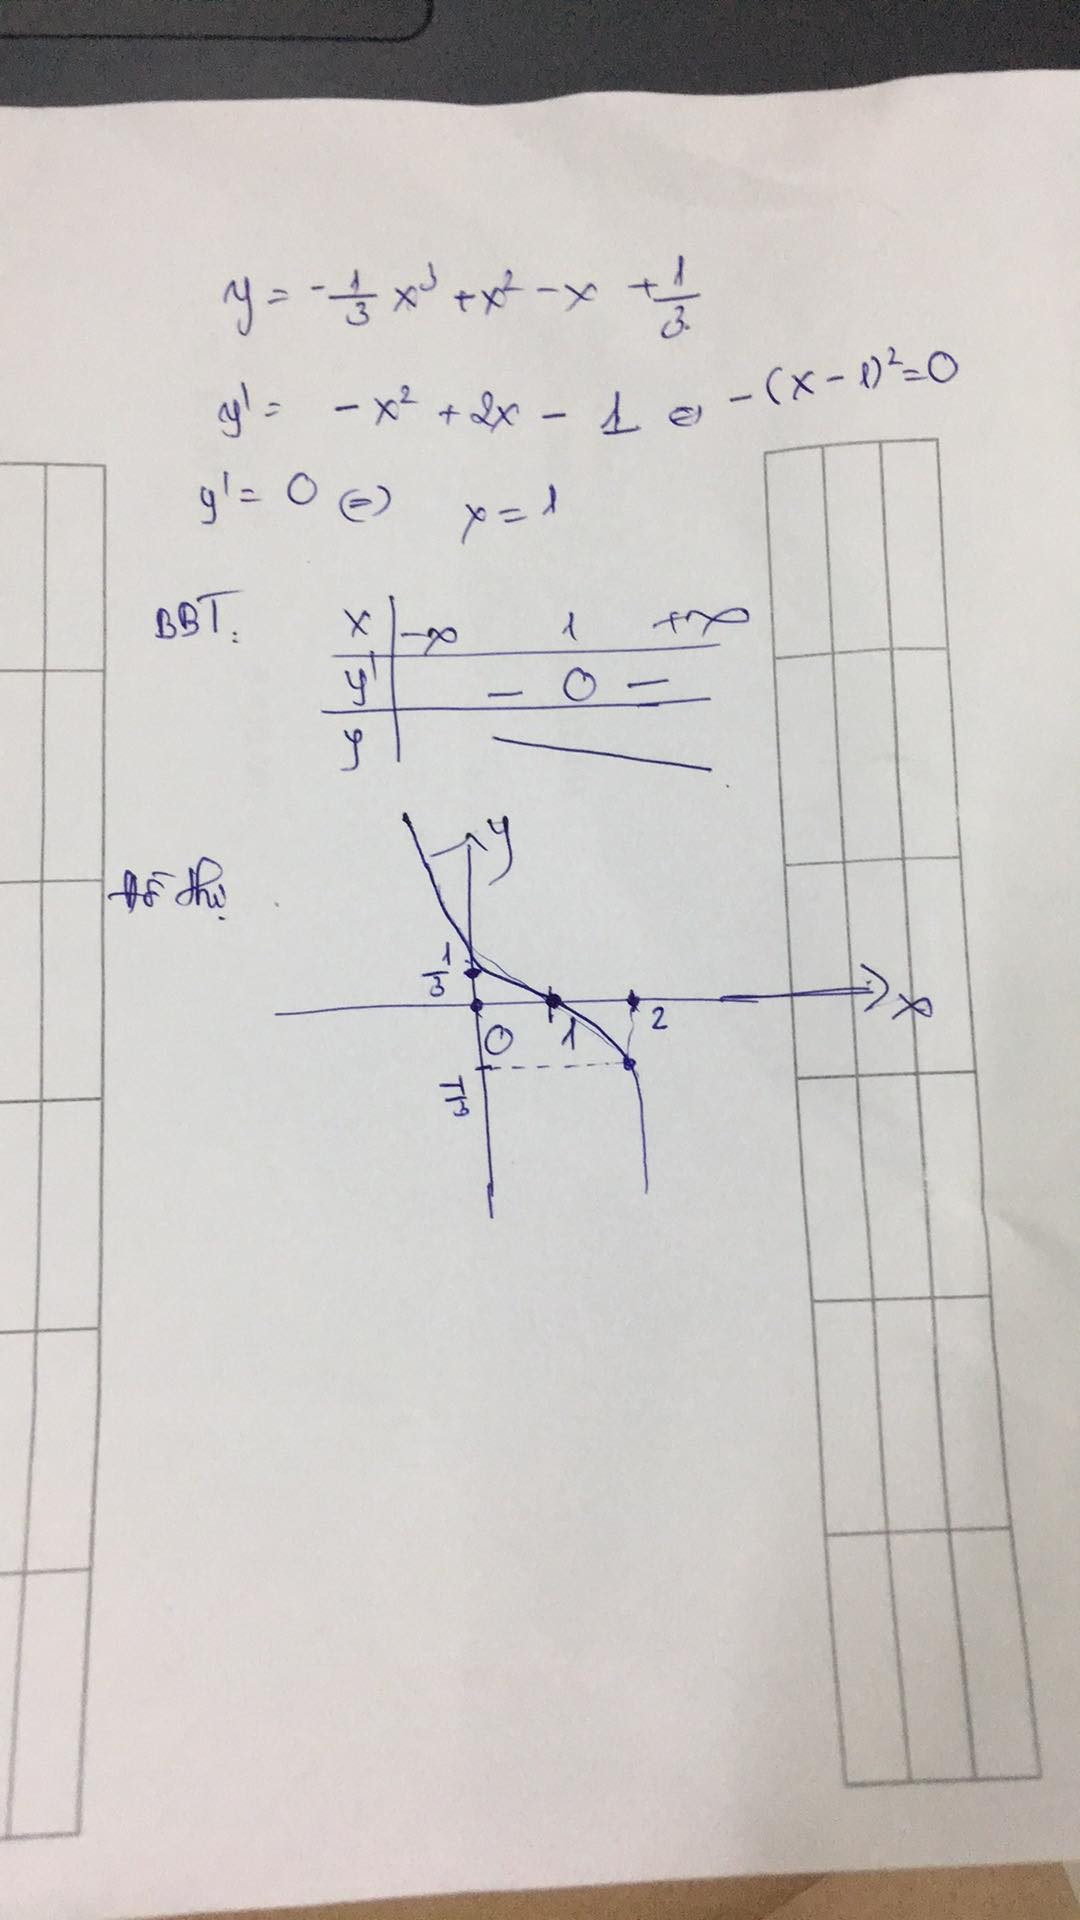 y = -1/3 x³ + x² - x + 1/3
y' = - x² + 2x - 1 ⇔ -(x - 1)² = 0
y' = 0 ⇔ x = 1
BBT:
x | -∞ 1 +∞
y' | - 0 -
y
Đồ thị
y
1/3
x
0 1 2
-1/3